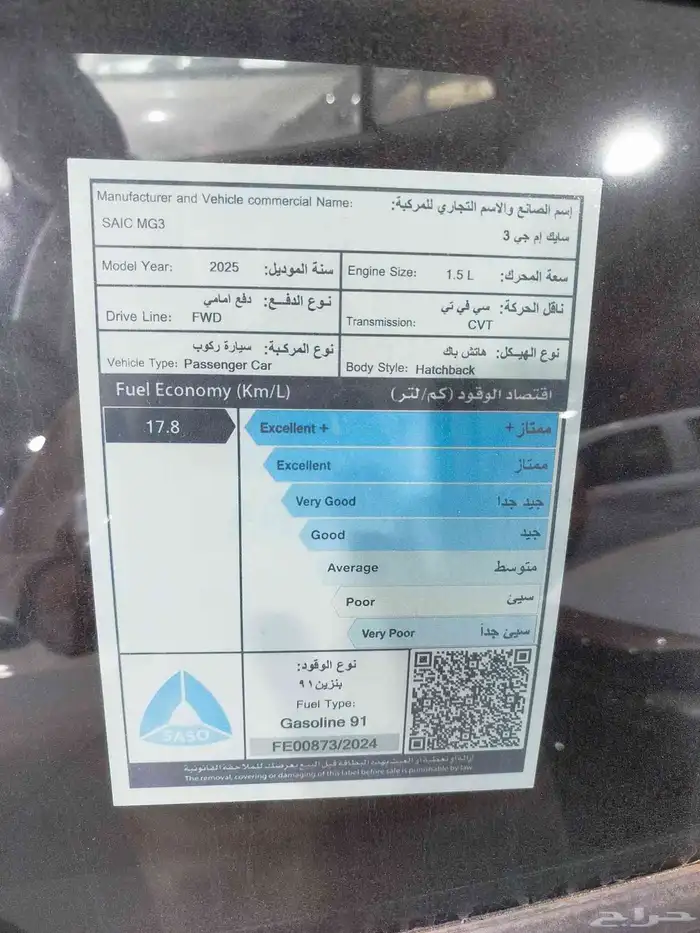 Manufacturer and Vehicle commercial Name: إسم الصانع والاسم التجاري للمركبة:
SAIC MG3 سايك إم جي 3
Model Year: 2025 سنة الموديل:
Engine Size: 1.5 L سعة المحرك:
نوع الدفع: دفع امامي
Drive Line: FWD
ناقل الحركة: سي في تي
Transmission: CVT
نوع المركبة: سيارة ركوب
Vehicle Type: Passenger Car
نوع الهيكل: هاتش باك
Body Style: Hatchback
Fuel Economy (Km/L) اقتصاد الوقود (كم/لتر)
17.8
Excellent + ممتاز +
Excellent ممتاز
Very Good جيد جدا
Good جيد
Average متوسط
Poor سيئ
Very Poor سيئ جداً
SASO
نوع الوقود:
بنزين ٩١
Fuel Type:
Gasoline 91
FE00873/2024
إزالة أو تغطية أو العبث بهذه البطاقة قبل البيع يعرضك للملاحقة القانونية
The removal, covering or damaging of this label before sale is punishable by law
حراج